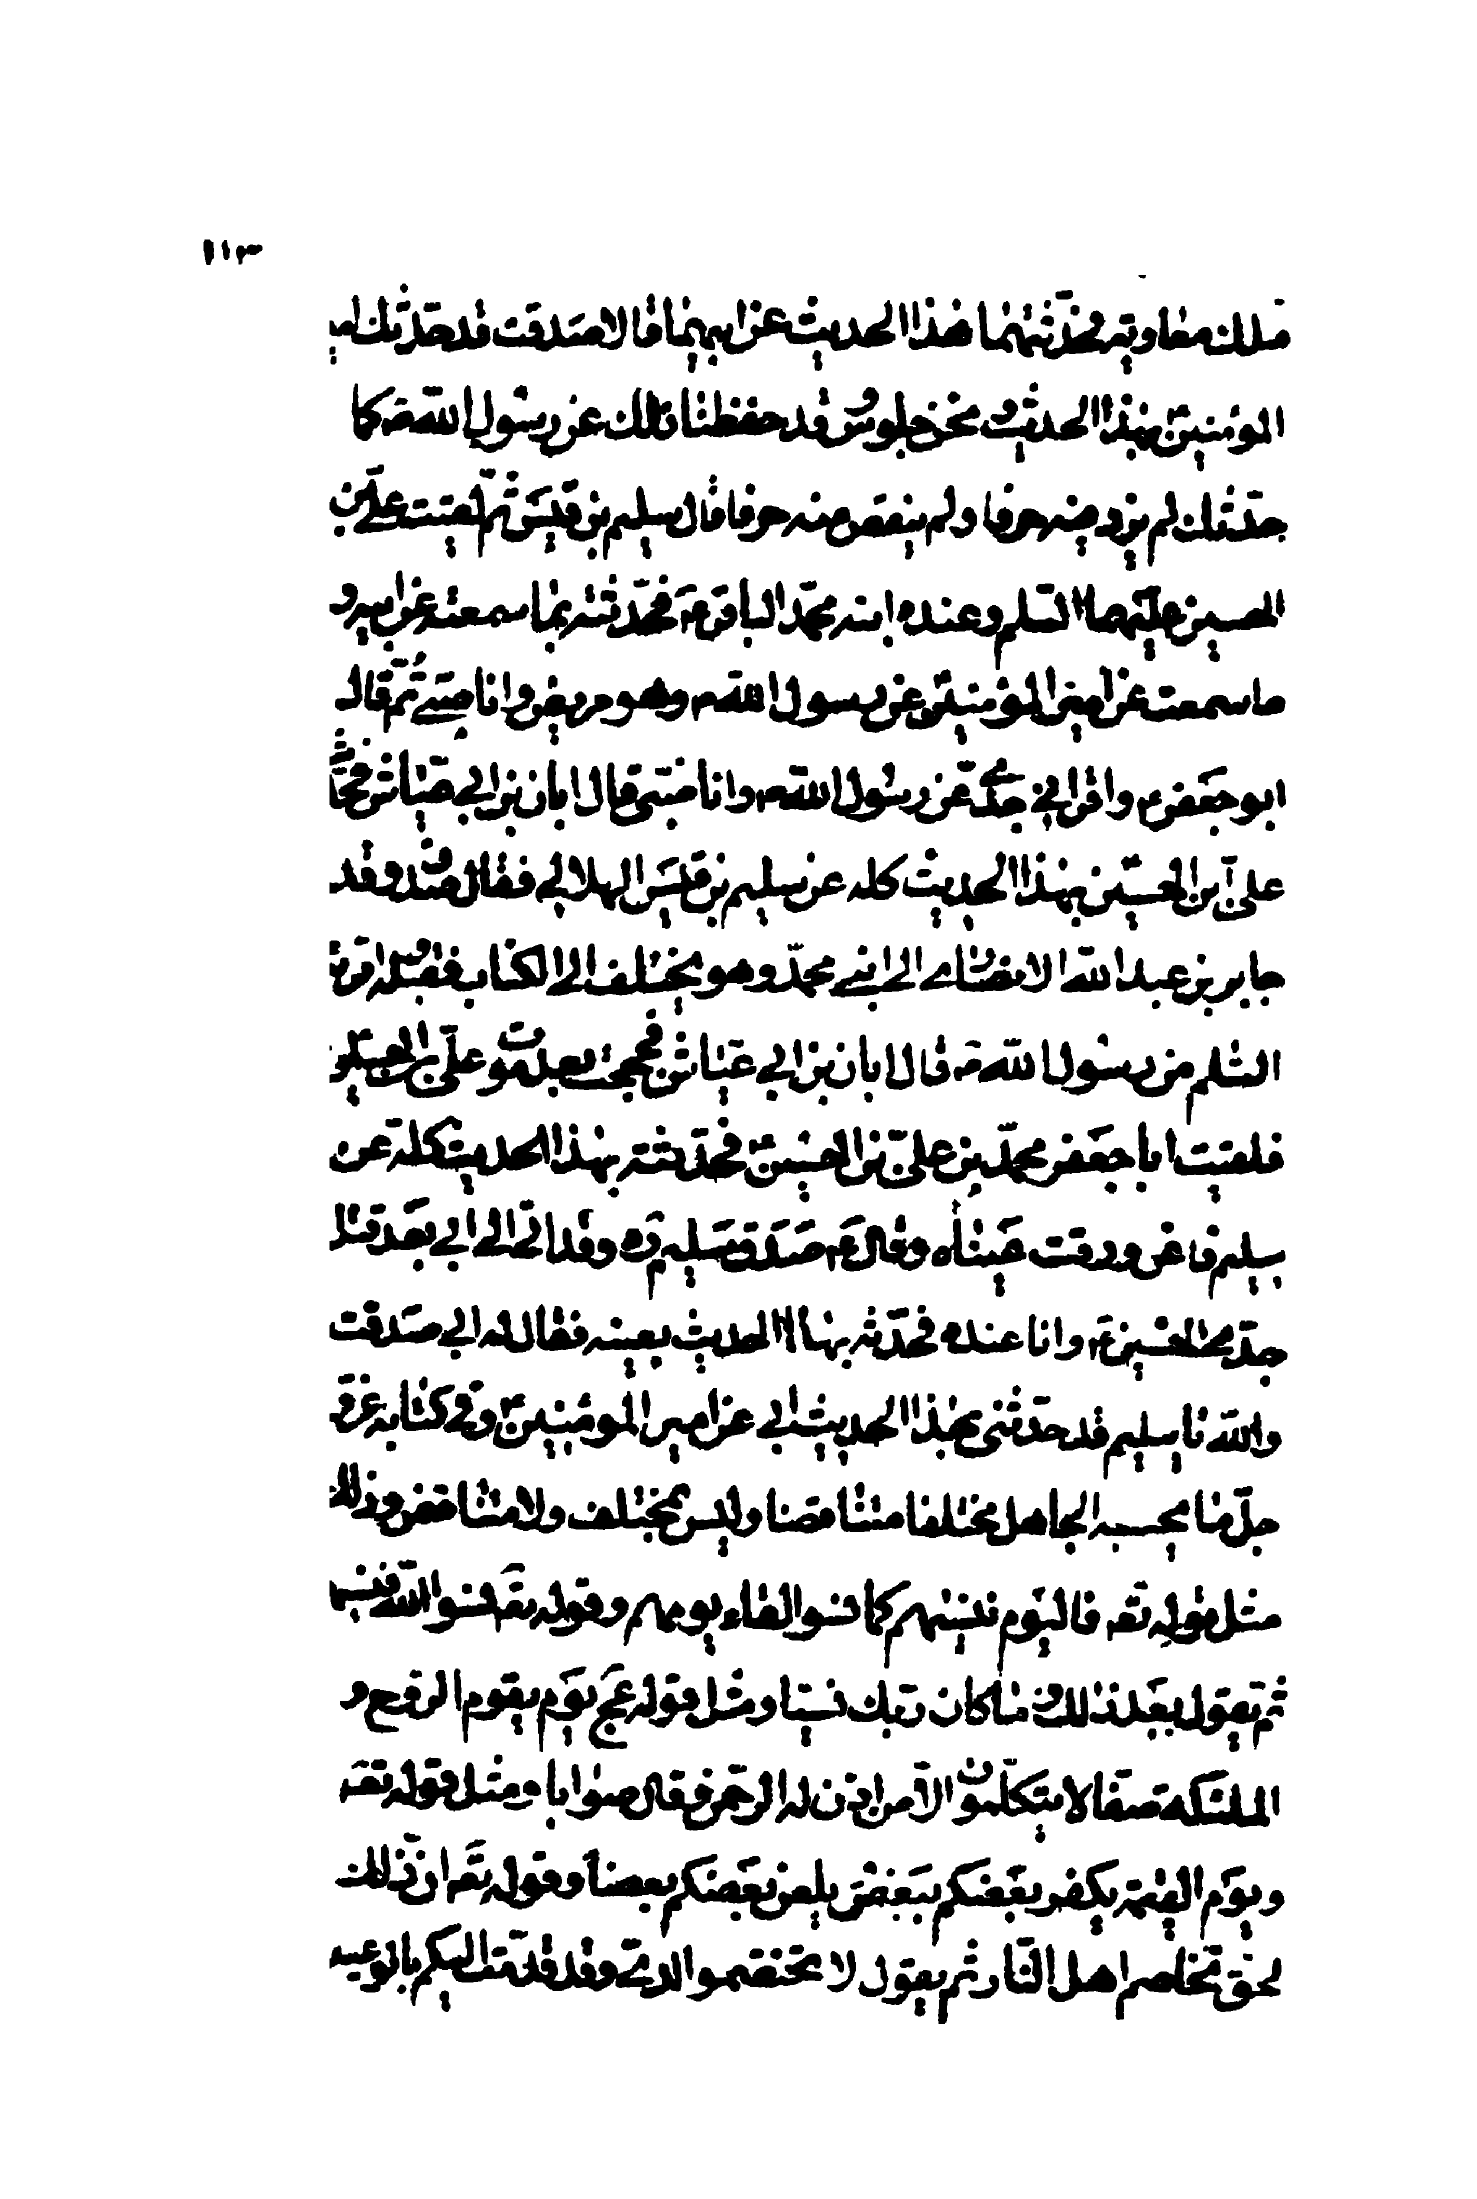 ١١٣
ملك معاوية فحدثتهما بهذا الحديث عن ابيهما قالا صدقت قد حدثك امير
المؤمنين ع بهذا الحديث ونحن جلوس وقد حفظنا ذلك عن رسول الله ص كما
حدثك لم يزد فيه حرفا ولم ينقص منه حرفا قال سليم بن قيس ثم لقيت علي بن
الحسين عليهما السلم وعنده ابنه محمد الباقر ع فحدثته بما سمعته عن ابيه و
ما سمعت عن امير المؤمنين ع عن رسول الله ص وهو مريض وانا صبي ثم قال
ابو جعفر ع واقراني جدي عن رسول الله ص وانا صبي قال ابان بن ابي عياش فحدثت
علي بن الحسين بهذا الحديث كله عن سليم بن قيس الهلالي فقال صدق وقد
جابر بن عبد الله الانصاري الى ابني محمد وهو يختلف الى الكتاب فقبله اقرئه
السلم من رسول الله ص قال ابان بن ابي عياش فحججت بعد موت علي بن الحسين
فلقيت ابا جعفر محمد بن علي بن الحسين ع فحدثته بهذا الحديث كله عن
سليم فاغرورقت عيناه وقال ع صدق سليم ره وقد اتى الى ابي بعد قتل
جدي الحسين ع وانا عنده فحدثه بهذا الحديث بعينه فقال له ابي صدقت
والله يا سليم قد حدثني بهذا الحديث ابي عن امير المؤمنين ع وفي كتابه عز و
جل ما يحسبه الجاهل مختلفا متناقضا وليس بمختلف ولا متناقض وذلك
مثل قوله تعه فاليوم ننسيهم كما نسوا لقاء يومهم وقوله تعه نسوا الله فنسيهم
ثم يقول بعد ذلك وما كان ربك نسيا ومثل قوله عج يوم يقوم الروح و
الملئكة صفا لا يتكلمون الا من اذن له الرحمن وقال صوابا ومثل قوله تعه
ويوم القيمة يكفر بعضكم ببعض يلعن بعضكم بعضا وقوله تعه ان ذلك
لحق تخاصم اهل النار ثم يقول لا تختصموا لدي وقد قدمت اليكم بالوعيد